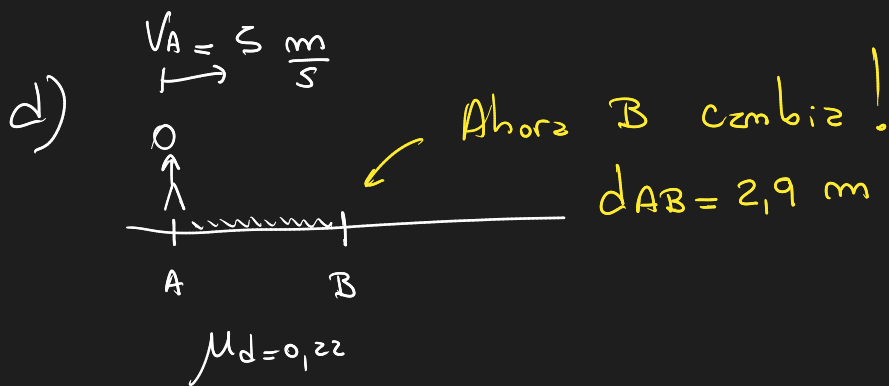 V_A = 5 m/s
d)
Ahora B cambia!
d_AB = 2,9 m
A B
μd = 0,22